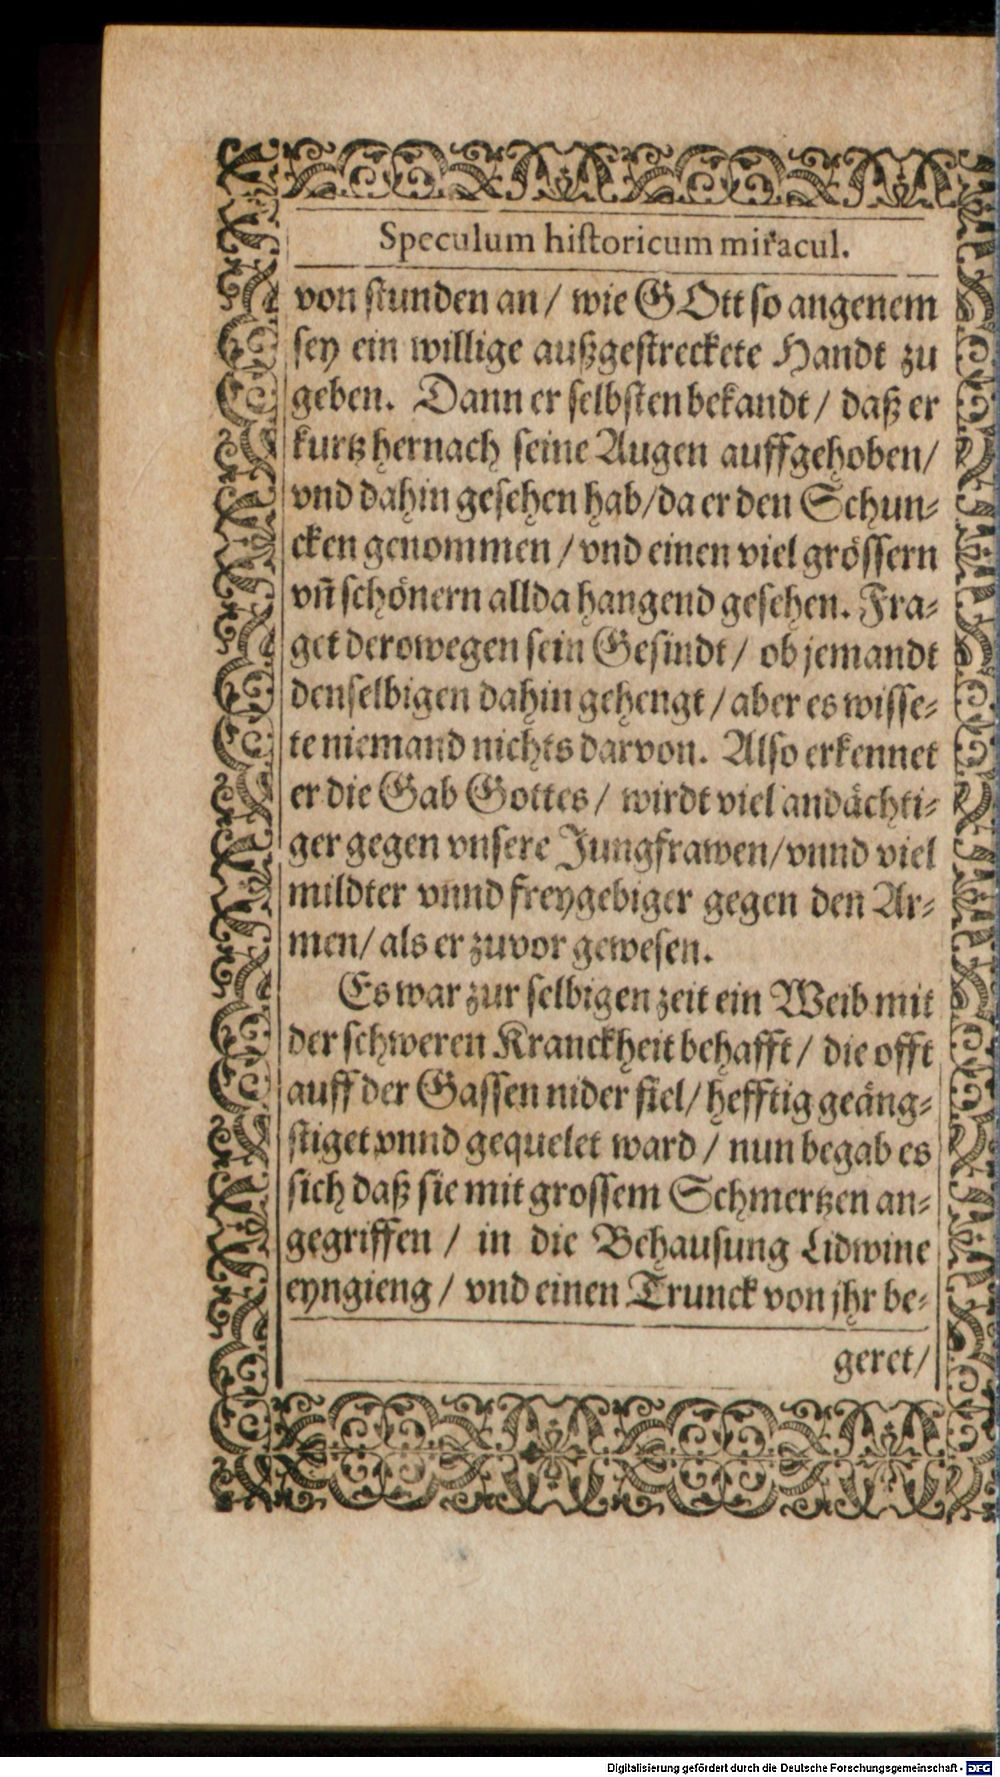 Speculum historicum miracul.
von stunden an / wie GOtt so angenem
sey ein willige außgestreckete Handt zu
geben. Dann er selbsten bekandt / daß er
kurtz hernach seine Augen auffgehoben /
vnd dahin gesehen hab / da er den Schun-
cken genommen / vnd einen viel grössern
vñ schönern allda hangend gesehen. Fra-
get derowegen sein Gesindt / ob jemandt
denselbigen dahin gehengt / aber es wisse-
te niemand nichts darvon. Also erkennet
er die Gab Gottes / wirdt viel andächti-
ger gegen vnsere Jungfrawen / vnnd viel
mildter vnnd freygebiger gegen den Ar-
men / als er zuvor gewesen.
Es war zur selbigen zeit ein Weib mit
der schweren Kranckheit behafft / die offt
auff der Gassen nider fiel / hefftig geäng-
stiget vnnd gequelet ward / nun begab es
sich daß sie mit grossem Schmertzen an-
gegriffen / in die Behausung Lidwine
eyngieng / vnd einen Trunck von jhr be-
geret /
Digitalisierung gefördert durch die Deutsche Forschungsgemeinschaft - DFG